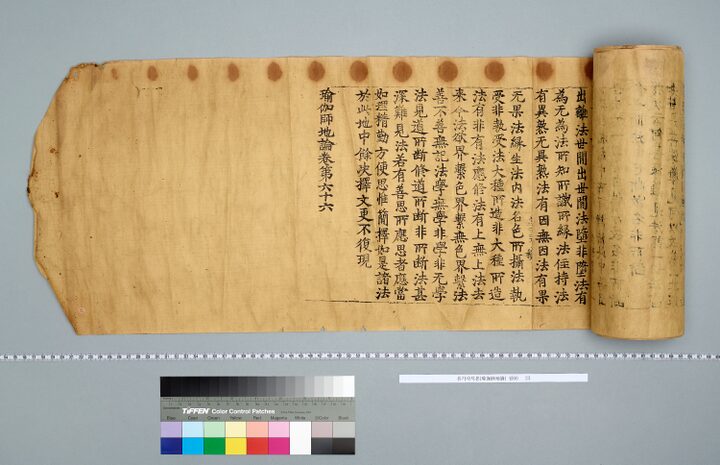 出離法世間出世間法墮非墮法有
為无為法所知所識所緣法住持法
有異熟无異熟法有因無因法有果
无果法緣生法內法名色所攝法執
受非執受法大種所造非大種所造
法有非有法應修法有上無上法去
來今法欲界繫色界繫無色界繫法
善不善無記法學無學非學无學
法見道所斷修道所斷非所斷法甚
深難見法若有善思所應思者應當
如理精勤方便思惟簡擇如是諸法
於此地中餘决擇文更不復現
瑜伽師地論卷第六十六
TIFFEN Color Control Patches
Blue Cyan Green Yellow Red Magenta White 3/Color Black